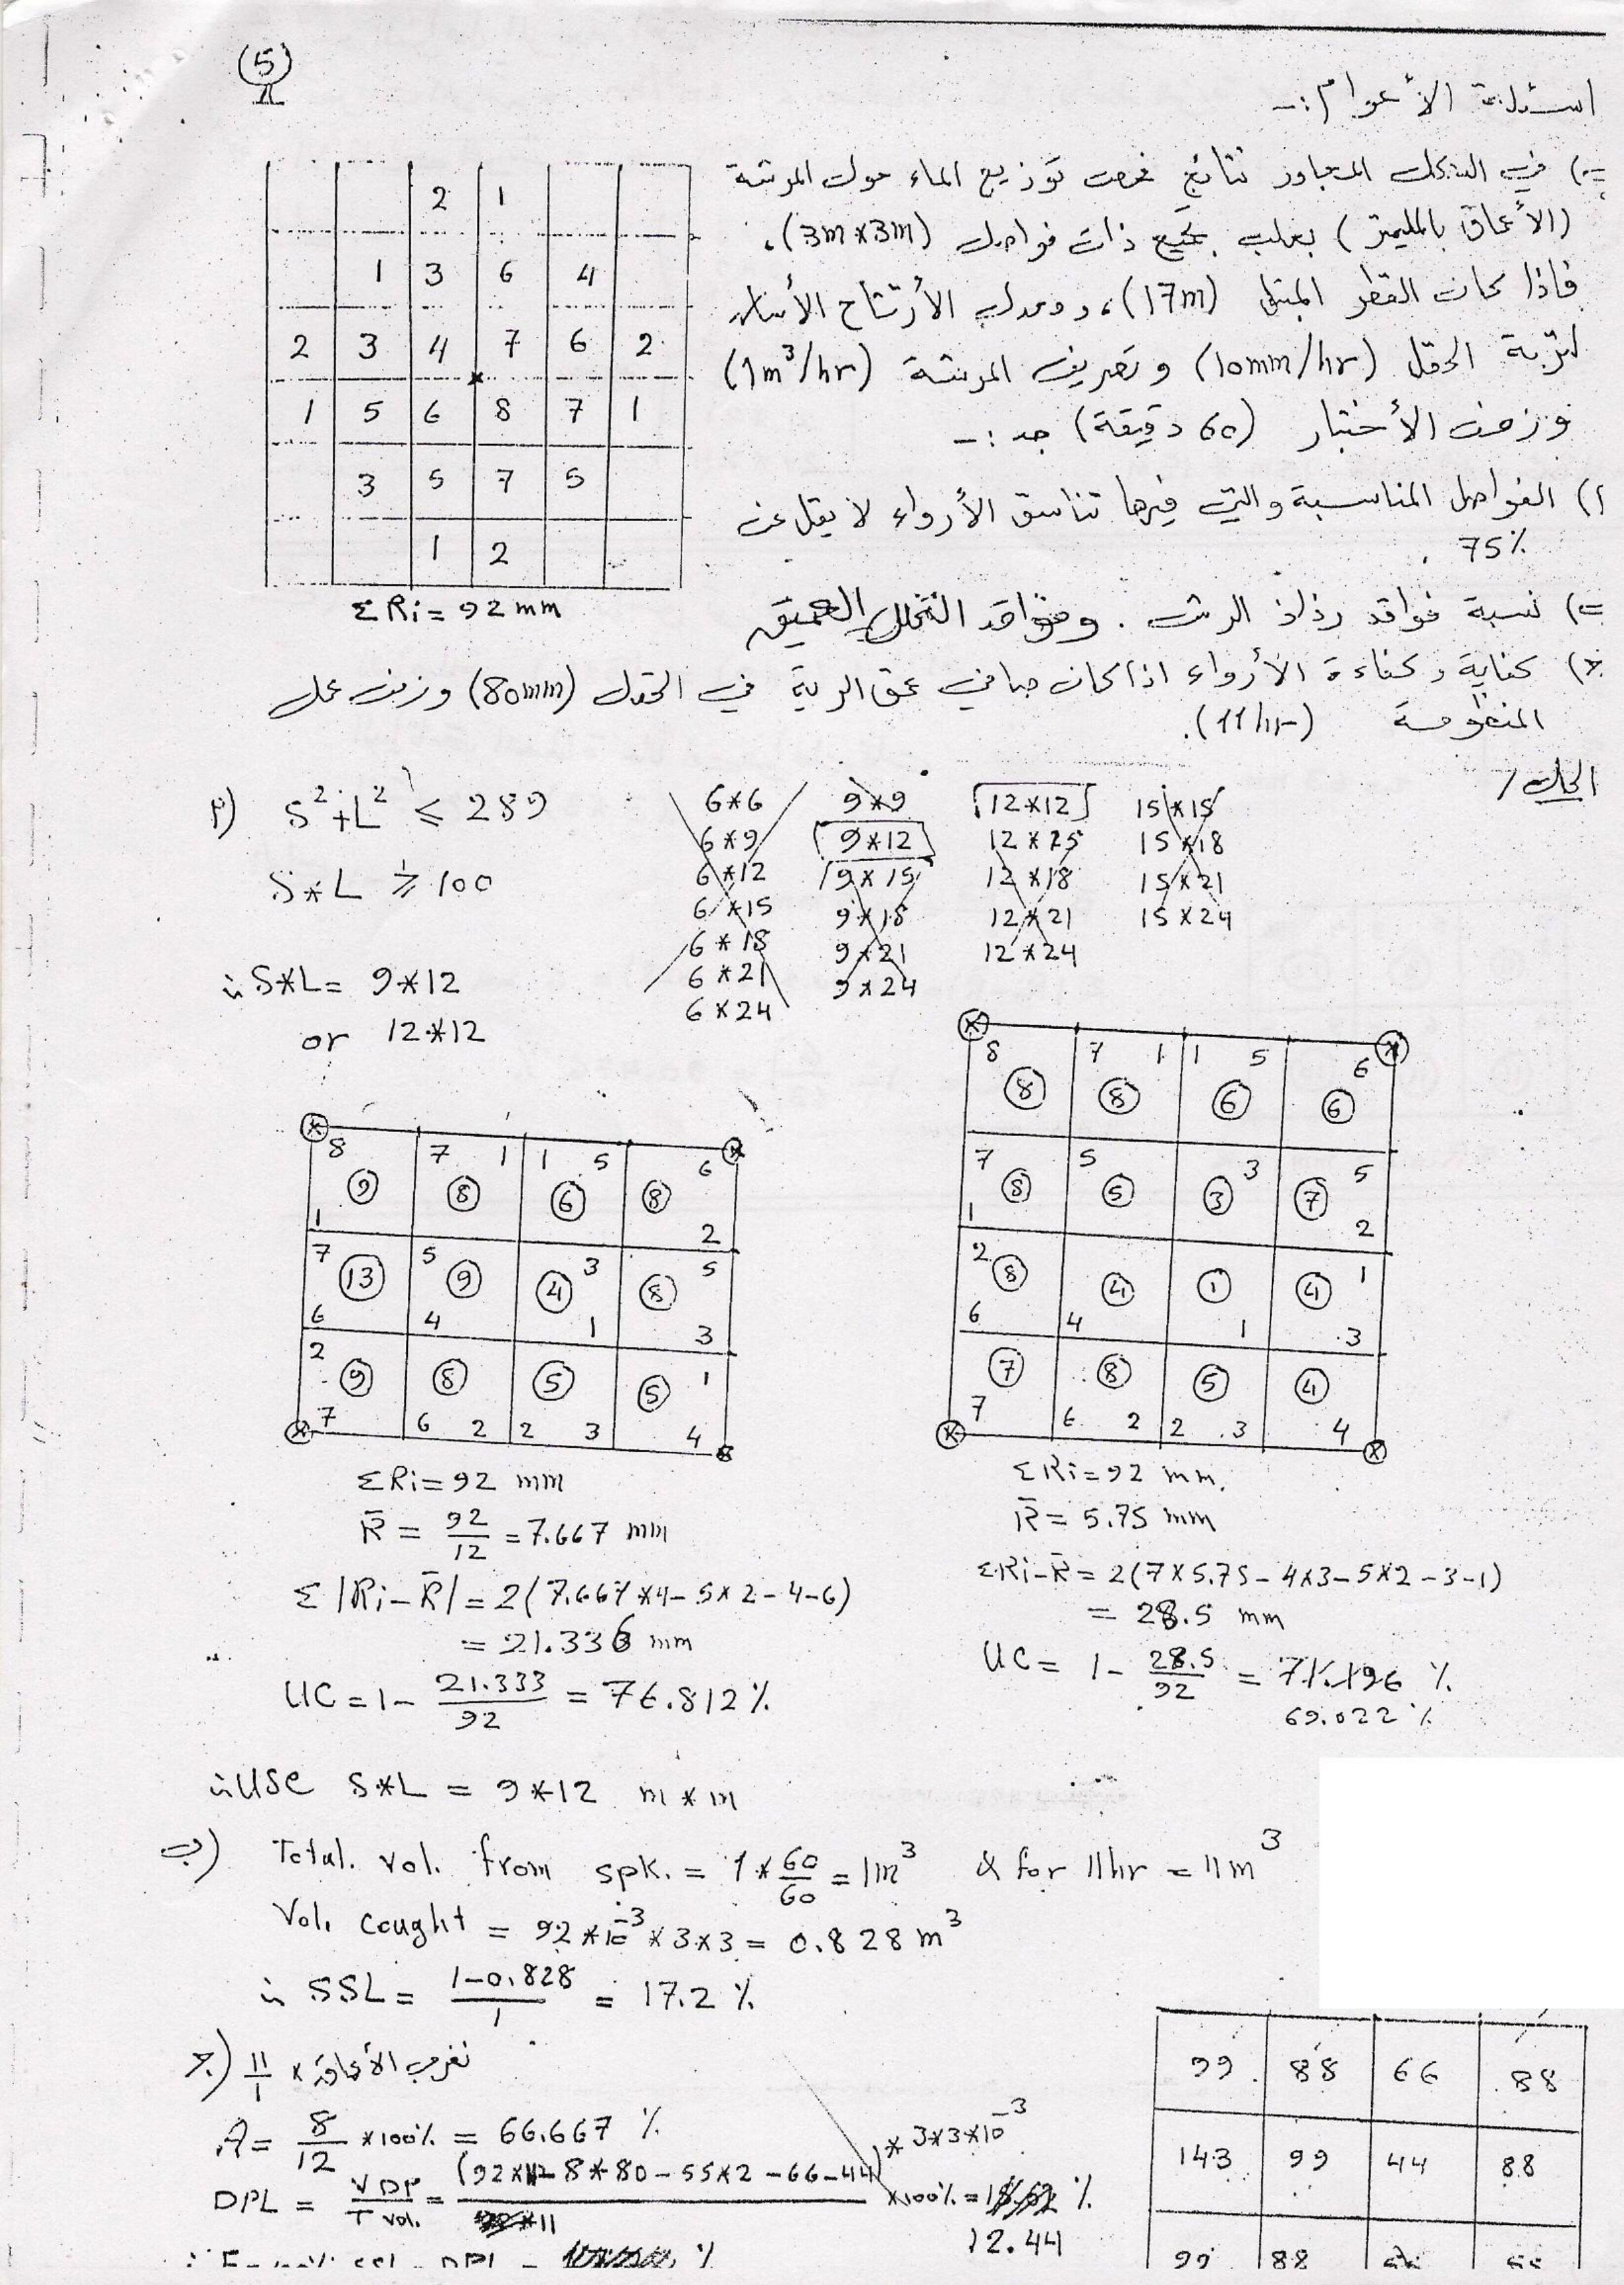 (5)
اسئلة الأعوام :-
في الشكل المجاور نتائج فحص توزيع الماء حول المرشة
(الأعماق بالمليمتر) بعلب تجميع ذات فواصل (3m×3m)،
فاذا كان القطر المبتل (17m)، ومعدل الأرتشاح الأساس
لتربة الحقل (10mm/hr) وتصريف المرشة (1m³/hr)
وزمن الأختبار (60 دقيقة) جد :-
أ) الفواصل المناسبة والتي فيها تناسق الأرواء لا يقل عن
75% .
ب) نسبة فواقد رذاذ الرش . وفواقد التخلل العميق
ج) كفاية وكفاءة الأرواء اذا كان صافي عمق الرية في الحقل (80mm) وزمن عمل
المنظومة (11hr).
2 1
1 3 6 4
2 3 4 7 6 2
1 5 6 8 7 1
3 5 7 5
1 2
ΣRi = 92 mm
الحل /
أ) S²+L² ≤ 289
S*L ≥ 100
∴ S*L = 9*12
or 12*12
6*6 9*9 12*12 15*15
6*9 9*12 12*15 15*18
6*12 9*15 12*18 15*21
6*15 9*18 12*21 15*24
6*18 9*21 12*24
6*21 9*24
6*24
8 7 1 1 5 6
9 8 6 8
1 2
7 5 3 5
13 9 4 8
6 4 1 3
2 1
9 8 5 5
7 6 2 2 3 4
ΣRi = 92 mm
R̄ = 92/12 = 7.667 mm
Σ|Ri-R̄| = 2(7.667*4-5*2-4-6)
= 21.336 mm
UC = 1- 21.333/92 = 76.812%
8 7 1 1 5 6
8 8 6 6
7 5 3 5
8 5 3 7
1 2
2 1
8 4 1 4
6 4 1 3
7 8 5 4
7 6 2 2 3 4
ΣRi = 92 mm.
R̄ = 5.75 mm
ΣRi-R̄ = 2(7×5.75-4×3-5×2-3-1)
= 28.5 mm
UC = 1- 28.5/92 = 71.196 %
69.022 %
∴ Use S*L = 9*12 m*m
ب) Total. vol. from spk. = 1*60/60 = 1m³ & for 11hr = 11m³
Vol. caught = 92*10⁻³×3×3 = 0.828 m³
∴ SSL = 1-0.828/1 = 17.2 %
ج) نضرب الأعماق × 11/1
A = 8/12 *100% = 66.667 %
DPL = VDP/T vol. = (92×11-8*80-55*2-66-44)*3*3*10⁻³/11 ×100% = %
12.44
99 88 66 88
143 99 44 88
99 88